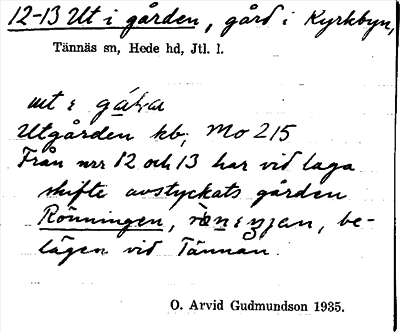 12-13 Ut i gården, gård i Kyrkbyn,
Tännäs sn, Hede hd, Jtl. l.
Utgården kb; Mo 215
Från nrr 12 och 13 har vid laga
skifte avstyckats gården
Rönningen, be-
lägen vid Tännan.
O. Arvid Gudmundson 1935.